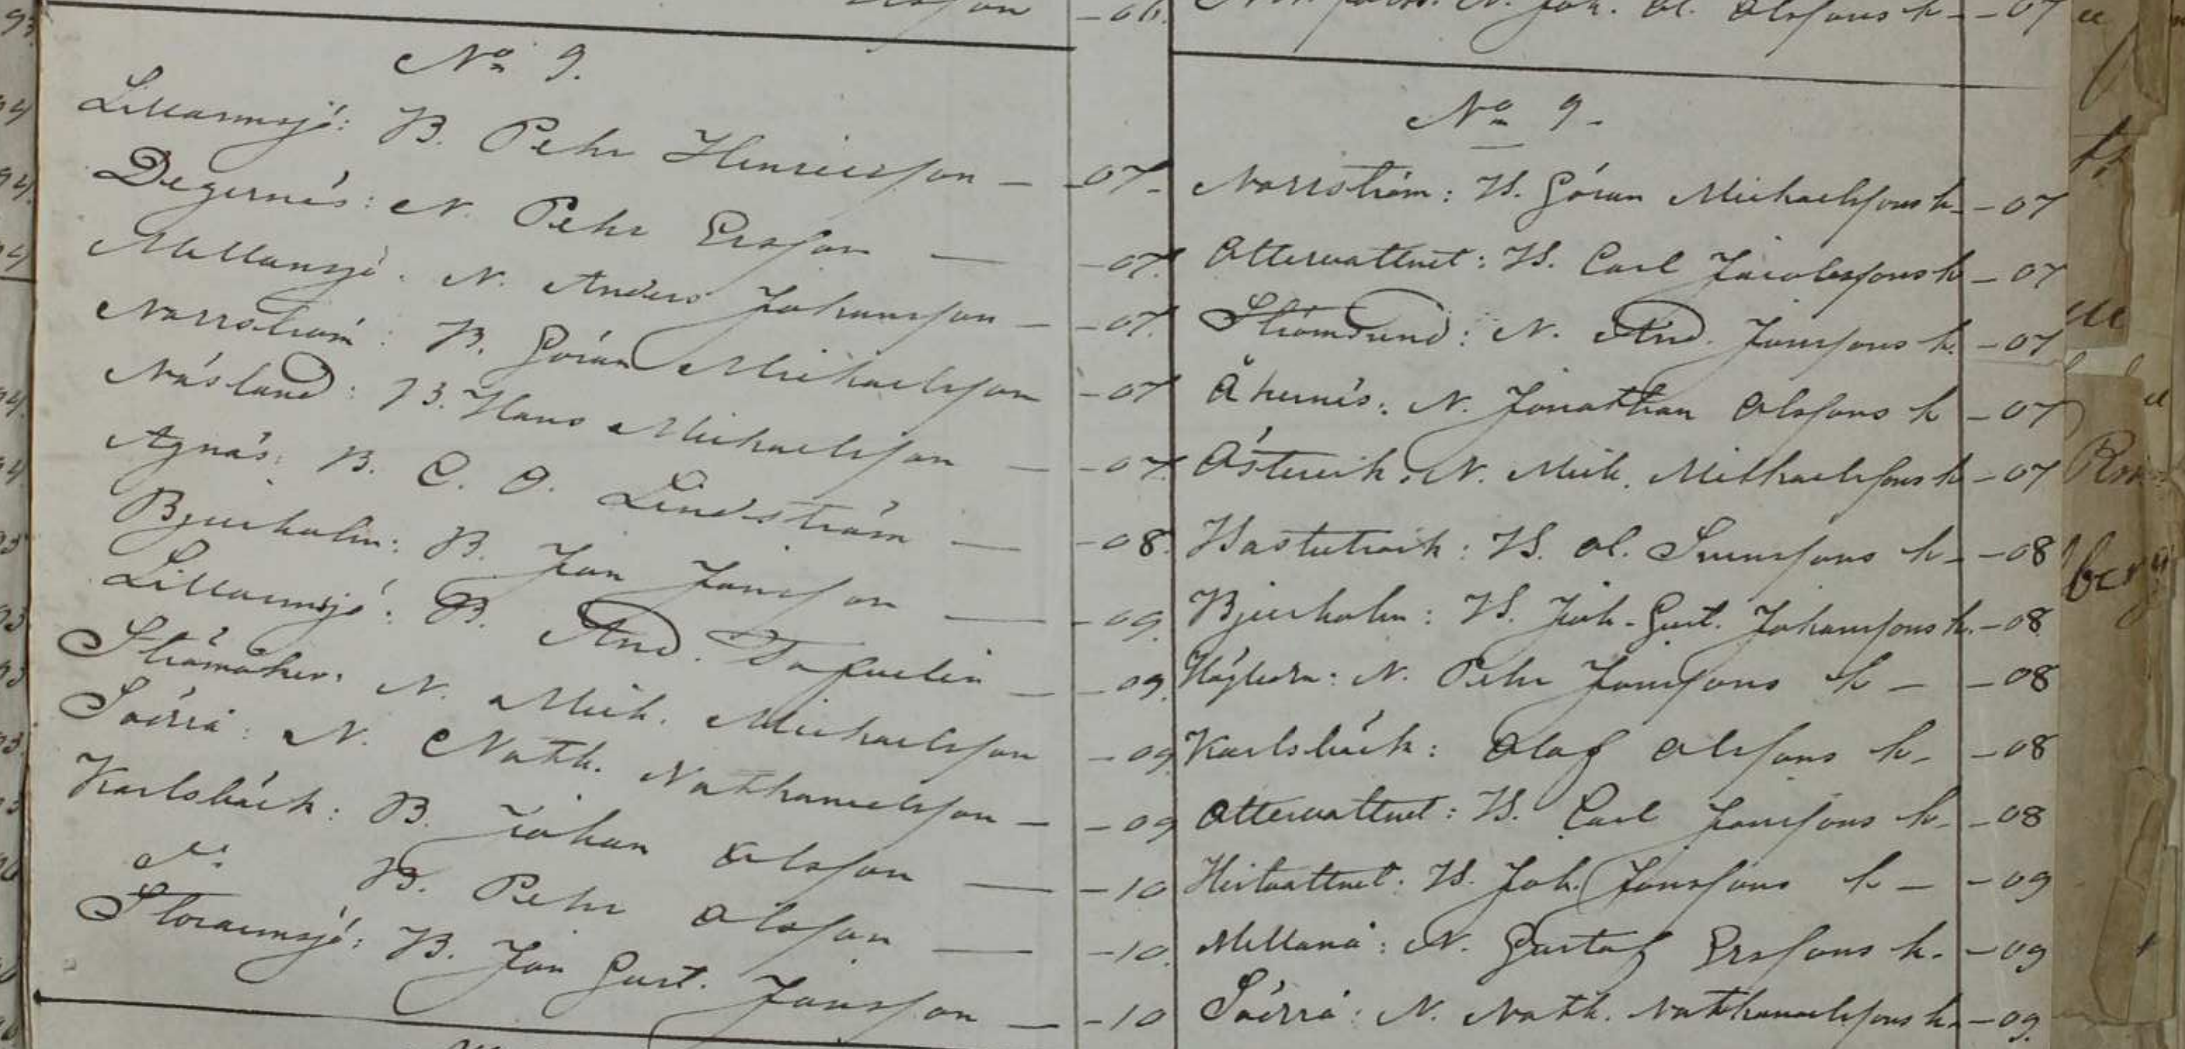 Nº 9.
Lillarmsjö: B. Pehr Henricsson — -07.
Degernäs: N. Pehr Ersson — -07.
Mellansjö: N. Anders Johansson — -07.
Norrström: B. Göran Michaelsson -07
Näsland: B. Hans Michaelsson — -07.
Agnäs: B. C. O. Lindström — -08.
Bjurholm: B. Jon Jonsson — -09.
Lillarmsjö: B. And. Tafvelin — -09.
Strömåker: N. Mich. Michaelsson -09
Sörå: N. Nath. Nathanaelsson — -09
Karlsbäck: B. Johan Olsson — -10
B. Pehr Olsson — -10.
Storarmsjö: B. Jon Gust. Jonsson — -10
Joh. Ol. Olssons h - -07
Nº 9.
Norrström: B. Göran Michaelssons h - -07
Ottervattnet: B. Carl Jacobssons h - 07
Strömsund: N. And. Jonssons h. -07
Åkernäs: N. Jonathan Olssons h -07
Östervik: N. Mich. Michaelssons h -07
Bastuträsk: B. Ol. Svenssons h - -08
Bjurholm: B. Joh. Gust. Johanssons h. -08
Högland: N. Pehr Jonssons h - -08
Karlsbäck: Olof Olssons h - -08
Ottervattnet: B. Carl Jonssons h - -08
B. Joh. Jonssons h - -09
Mellanå: N. Gustaf Erssons h. -09
Sörå: N. Nath. Nathanaelssons h - 09.